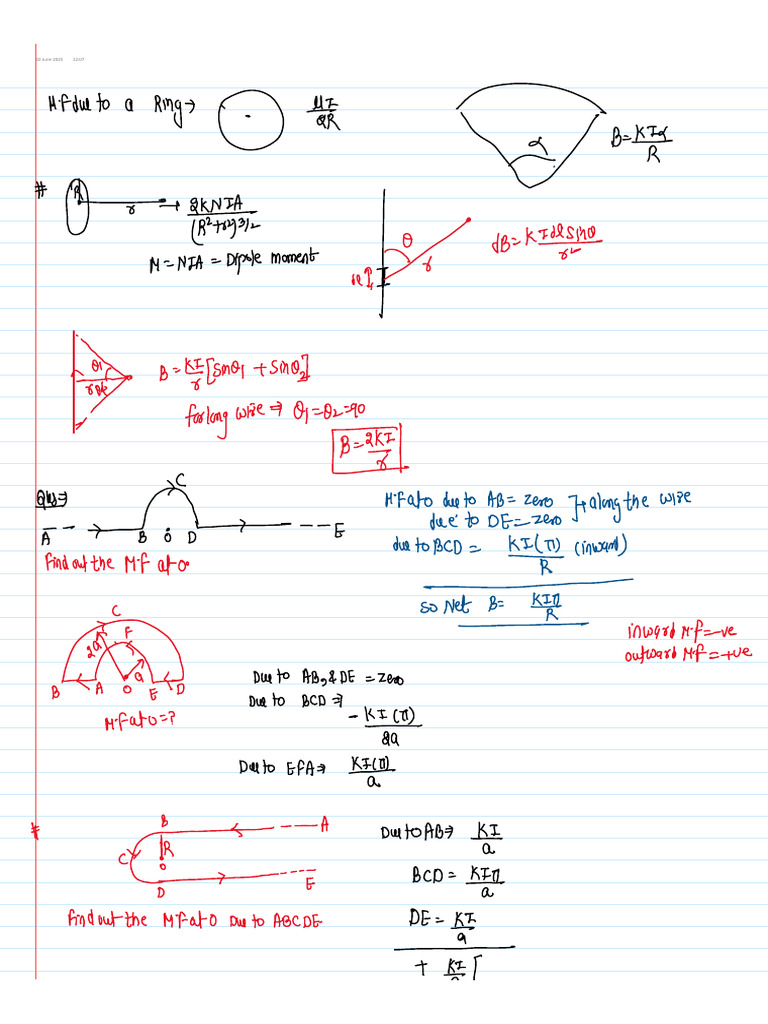 12:07
M.f due to a Ring→ μI/2R
α B=KIα/R
# R r → 2KNIA/(R²+r²)^3/2
M=NIA = Dipole moment
θ r dl dB=KIdlSinθ/r²
θ1 r B=KI/r[Sinθ1 + Sinθ2]
for long wire ⇒ θ1=θ2=90
B=2KI/r
Qus⇒ A B O D C E
Find out the M.f at O.
M.f at O due to AB = zero } → along the wire
due to DE = zero
due to BCD = KI(π)/R (inward)
so Net B= KIπ/R
inward M.f = -ve
outward M.f = +ve
C 2a F a B A O E D
M.f at O=?
Due to AB, & DE = zero
Due to BCD ⇒
- KI(π)/2a
Due to EFA⇒ KI(π)/a
# B A C R O D E
Find out the M.f at O Due to ABCDE
Due to AB⇒ KI/a
BCD = KIπ/a
DE = KI/a
+ KI/a [